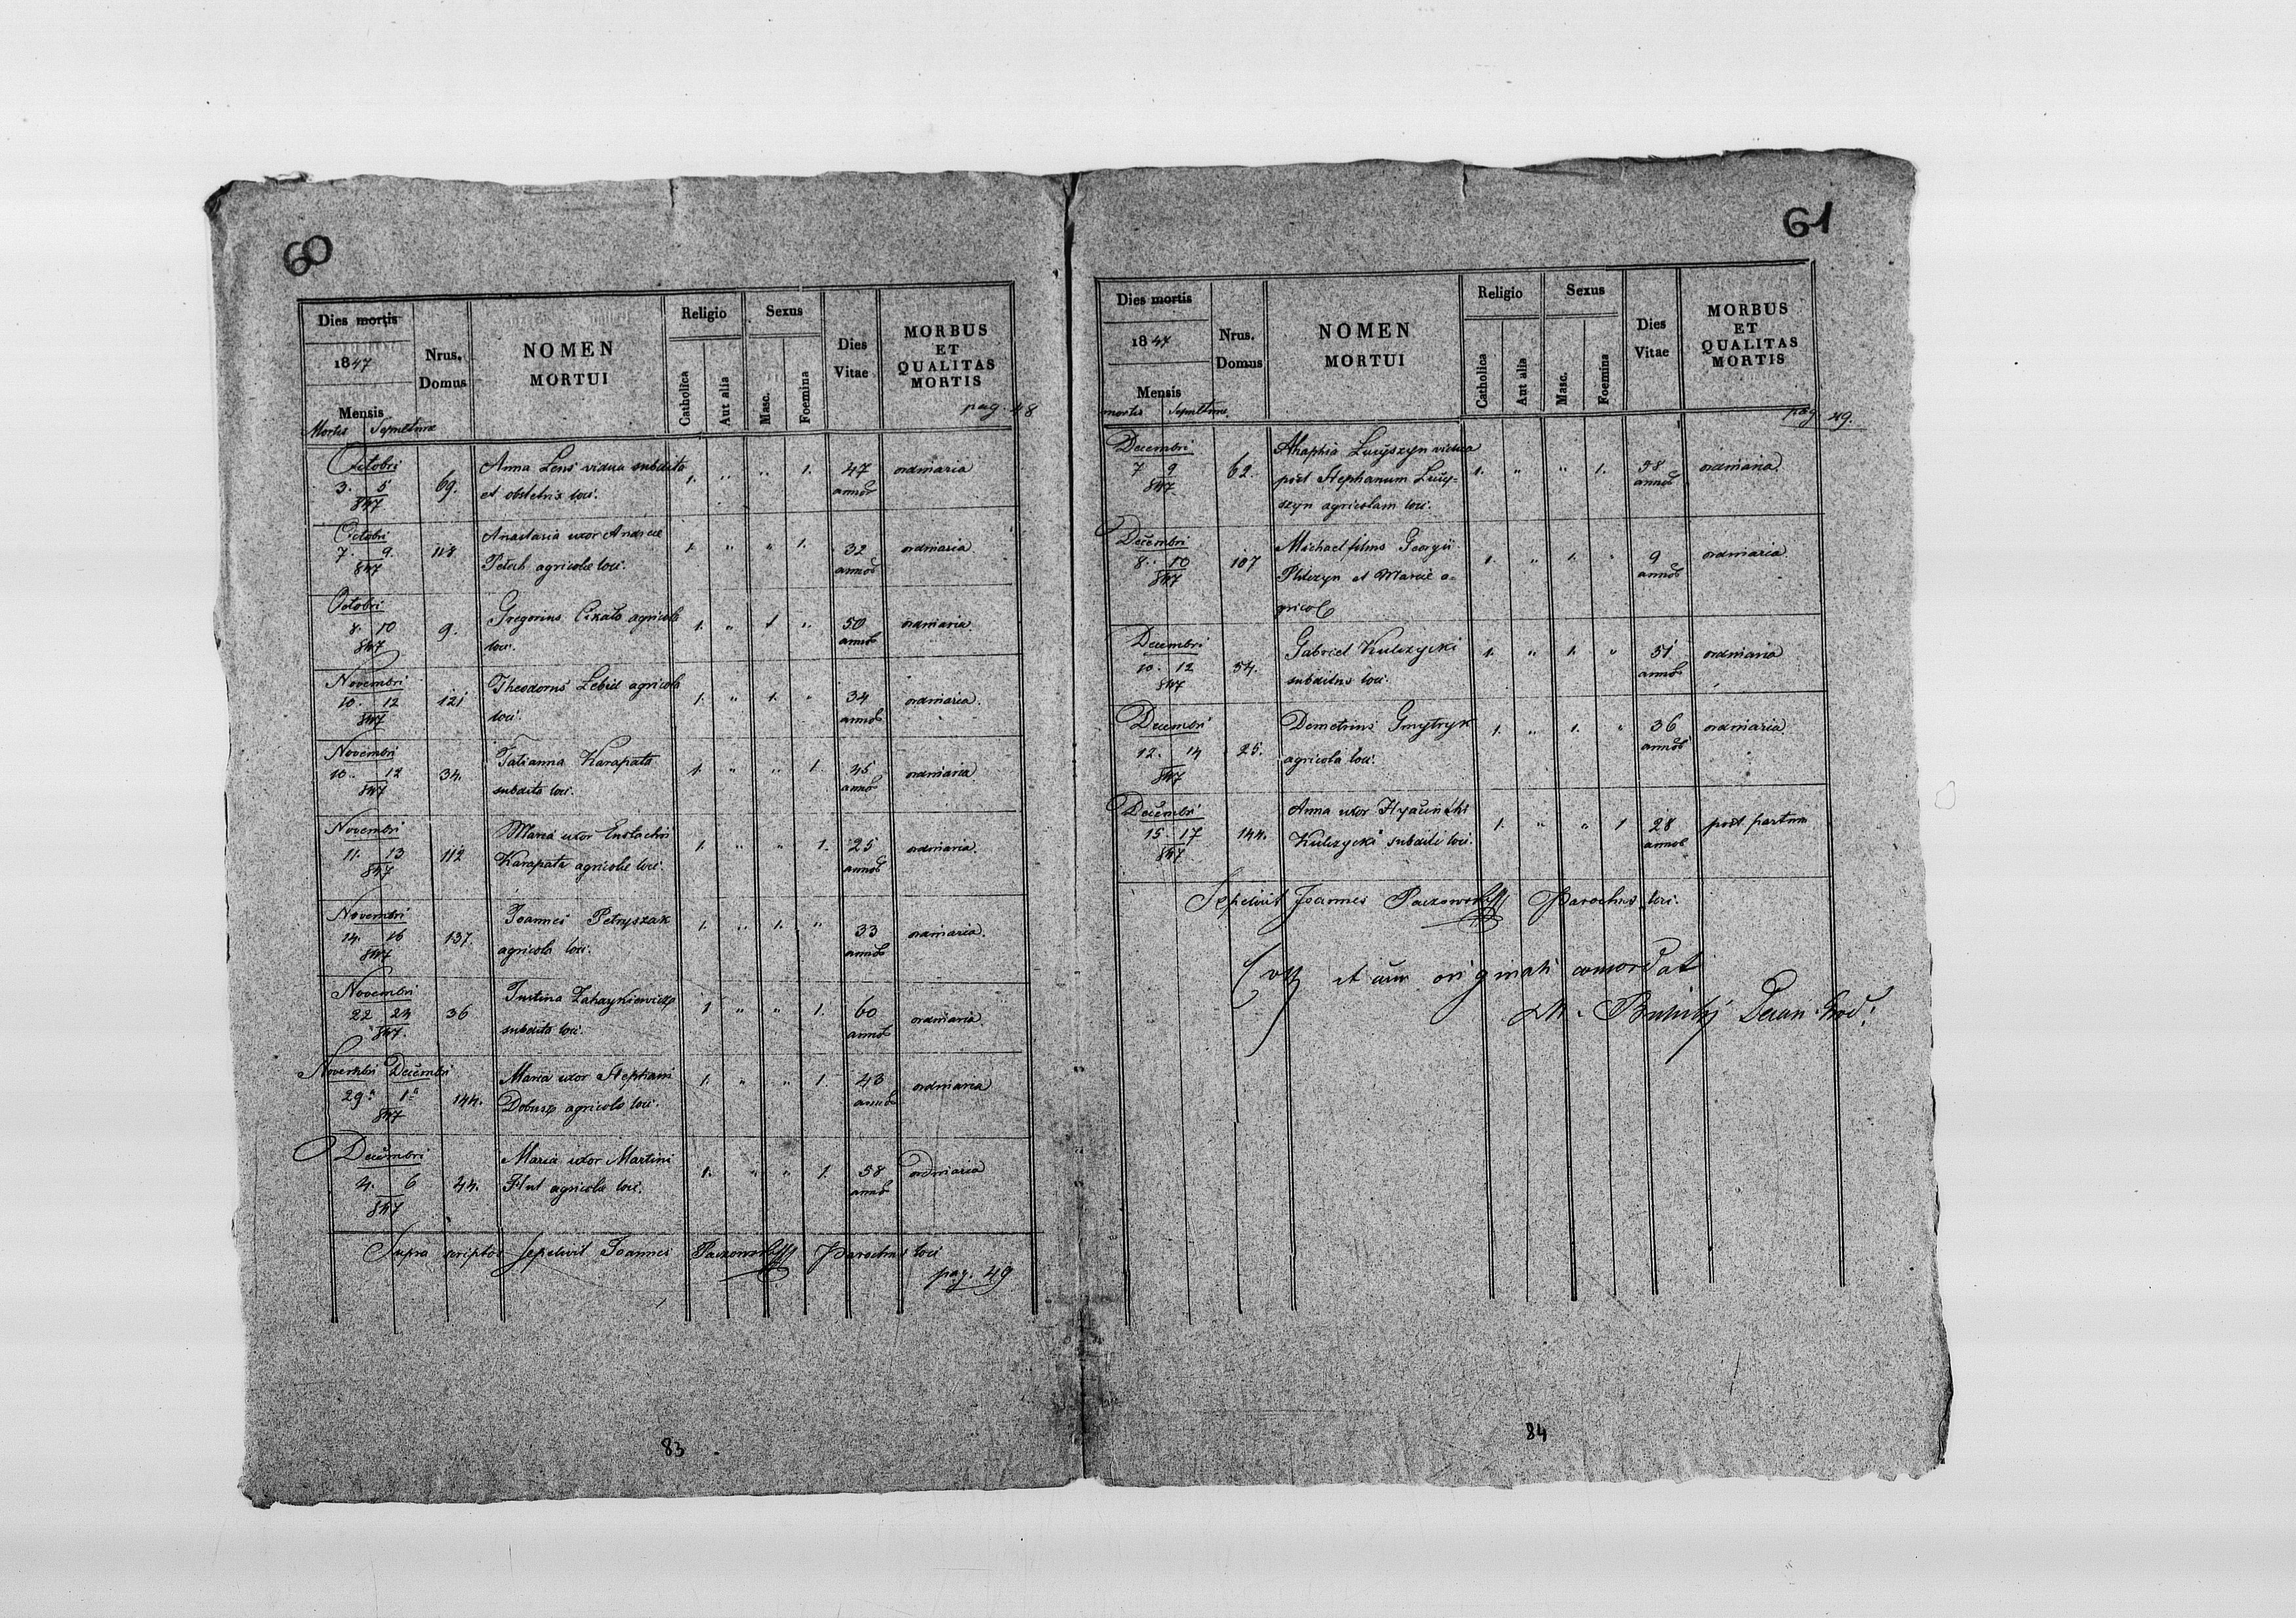 60
Dies mortis
1847
Mensis
Mortis Sepulturae
Nrus. Domus
NOMEN MORTUI
Religio
Catholica
Aut alia
Sexus
Masc.
Foemina
Dies Vitae
MORBUS ET QUALITAS MORTIS
pag. 48
Octobri
3. 5 69. Anna Lens vidua subdita 1. " " 1. 47 ordinaria
847 et obstetrix loci. annor
Octobri
7. 9. 118 Anastasia uxor Andreae 1. " " 1. 32 ordinaria
847 agricolae loci. annor
Octobri
8. 10 9. Gregorius agricola 1. " 1 " 50 ordinaria
847 loci. annor
Novembri
10. 12 121 Theodorus agricola 1. " 1. " 34 ordinaria.
847 loci. annor
Novembri
10. 12 34. Tatianna Karapata 1. " " 1. 45 ordinaria
847 subdita loci. annor
Novembri
11. 13 112 Maria uxor Eustachii 1. " " 1. 25 ordinaria.
847 Karapata agricolae loci. annor
Novembri
14. 16 137. Joannes Petryszak 1. " 1. " 33 ordinaria.
847 agricola loci. annor
Novembri
22 24 36 Justina 1 " " 1. 60 ordinaria.
847. subdita loci. annor
Novembri Decembri
29a 1a 144. Maria uxor Stephani 1. " " 1. 43 ordinaria
847 agricola loci. annor
Decembri
4. 6 44. Maria uxor Martini 1. " " 1. 58 ordinaria
847 Hut agricolae loci. annor
Supra scriptos sepelivit Joannes Paczowski Parochus loci
pag. 49
83
61
Dies mortis
1847
Mensis
mortis Sepulturae
Nrus. Domus
NOMEN MORTUI
Religio
Catholica
Aut alia
Sexus
Masc.
Foemina
Dies Vitae
MORBUS ET QUALITAS MORTIS
pag 49.
Decembri
7 9 62. Ahaphia Łucyszyn vidua 1. " " 1. 38 ordinaria
847 post Stephanum Łucy=
szyn agricolam loci. annor
Decembri
8. 10 107 Michael filius Georgii 1. " 1. " 9 ordinaria
847 et Mariae a=
gricol annor
Decembri
10. 12 54. Gabriel Kulczycki 1. " 1. " 51 ordinaria
847 subditus loci. annor
Decembri
12. 14 25. Demetrius Gmytryk 1. " 1. " 36 ordinaria
847 agricola loci. annor
Decembri
15. 17 144. Anna uxor Hyacinthi 1. " " 1 28 post partum
847 Kulczycki subditi loci. annor
Sepelivit Joannes Paczowski Parochus loci.
et cum originali concordat
84